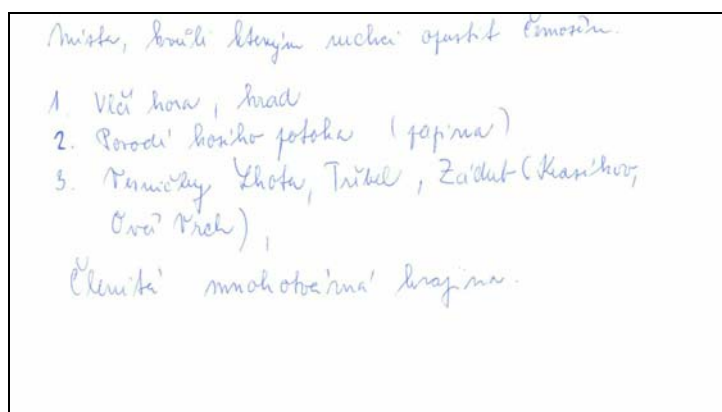 Místa, kvůli kterým nechci opustit Černošín.
1. Vlčí hora, hrad
2. Povodí kosího potoka (
3. Vesničky Lhota, Třebel, Zádub (Krasíkov,
Ovčí Vrch),
Členitá mnohotvárná krajina.